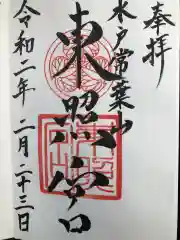 奉拝
水戸常葉山
東照宮
令和二年 二月二十三日